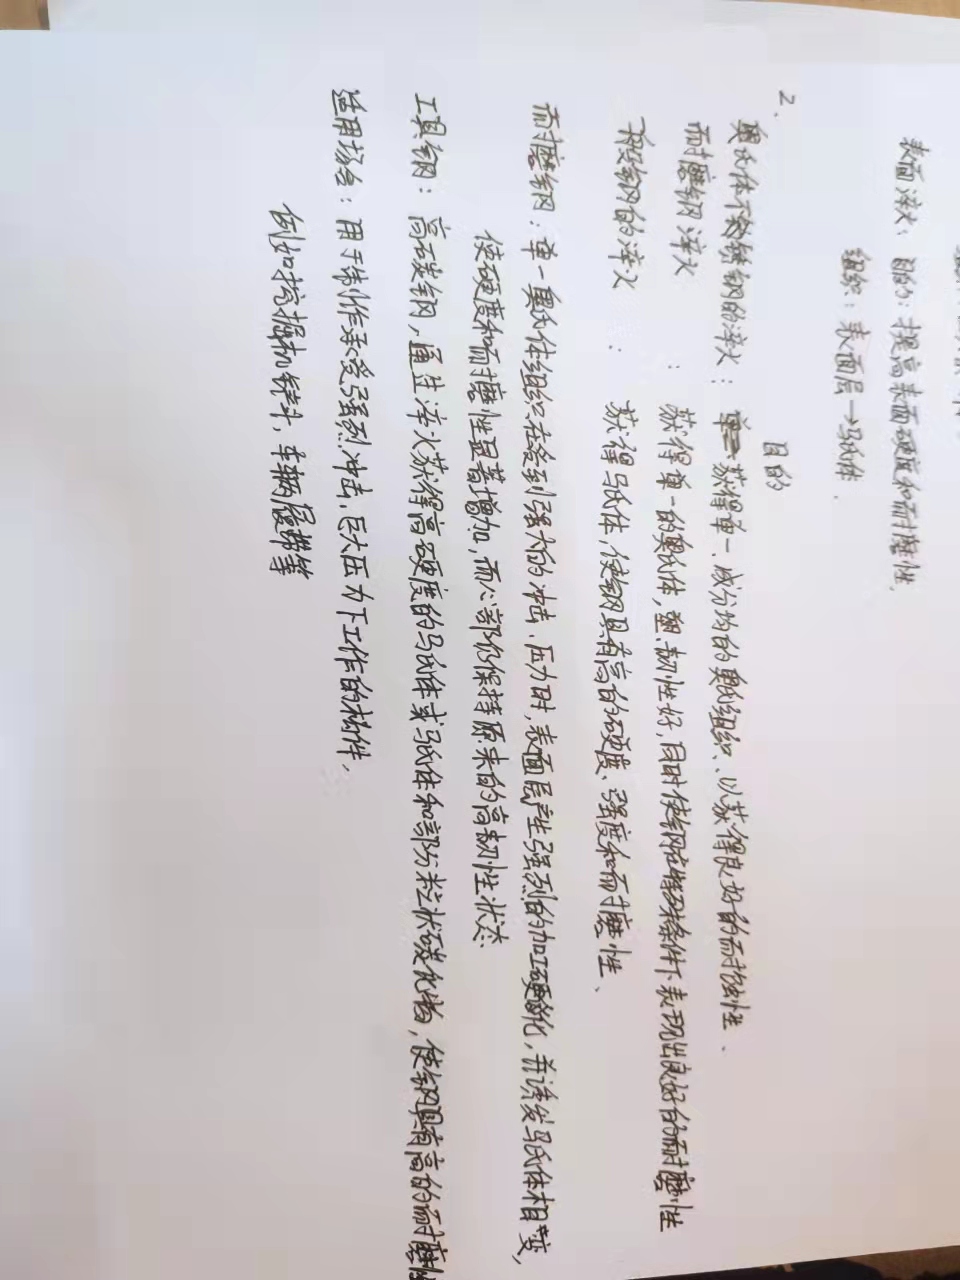 表面淬火：目的：提高表面硬度和耐磨性.
组织：表面层→马氏体.
2、
目的
奥氏体不锈钢的淬火：获得单一、成分均的奥氏组织、以获得良好的耐蚀性、
耐磨钢淬火：获得单一的奥氏体，塑韧性好，同时使钢在特殊条件下表现出良好的耐磨性
钢的淬火：获得马氏体，使钢具有高的硬度、强度和耐磨性、
耐磨钢：单一奥氏体组织在受到强大的冲击、压力时，表面层产生强烈的加工硬化，并诱发马氏体相变，
使硬度和耐磨性显著增加，而心部仍保持原来的高韧性状态.
工具钢：高碳钢，通过淬火获得高硬度的马氏体或马氏体和部分粒状碳化物，使钢具有高的耐磨性
适用场合：用于制作承受强烈冲击、巨大压力下工作的构件，
例如挖掘机铲斗，车辆履带等